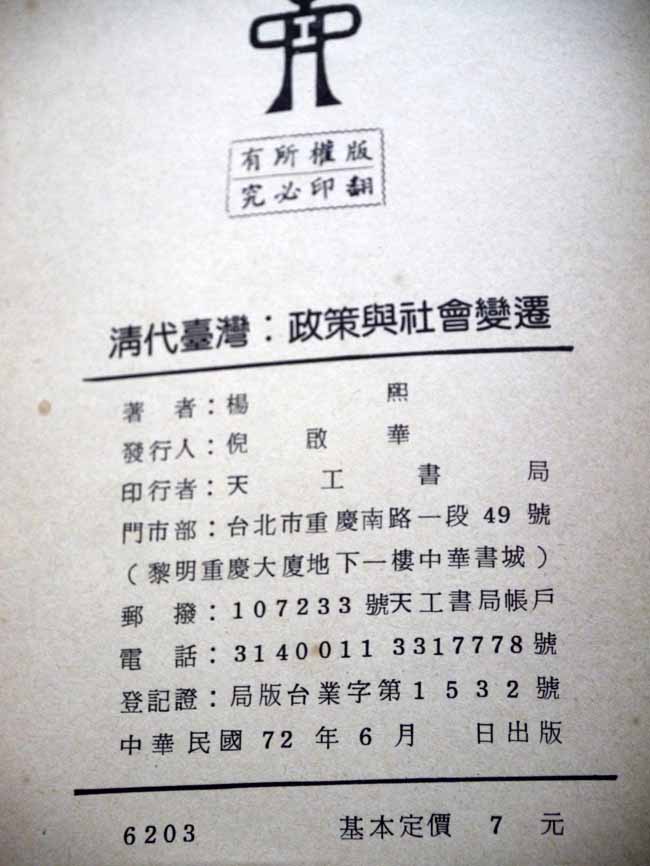 版權所有
翻印必究
清代臺灣：政策與社會變遷
著者：楊熙
發行人：倪啟華
印行者：天工書局
門市部：台北市重慶南路一段49號
（黎明重慶大廈地下一樓中華書城）
郵撥：107233號天工書局帳戶
電話：3140011 3317778號
登記證：局版台業字第1532號
中華民國72年6月　日出版
6203　基本定價 7 元